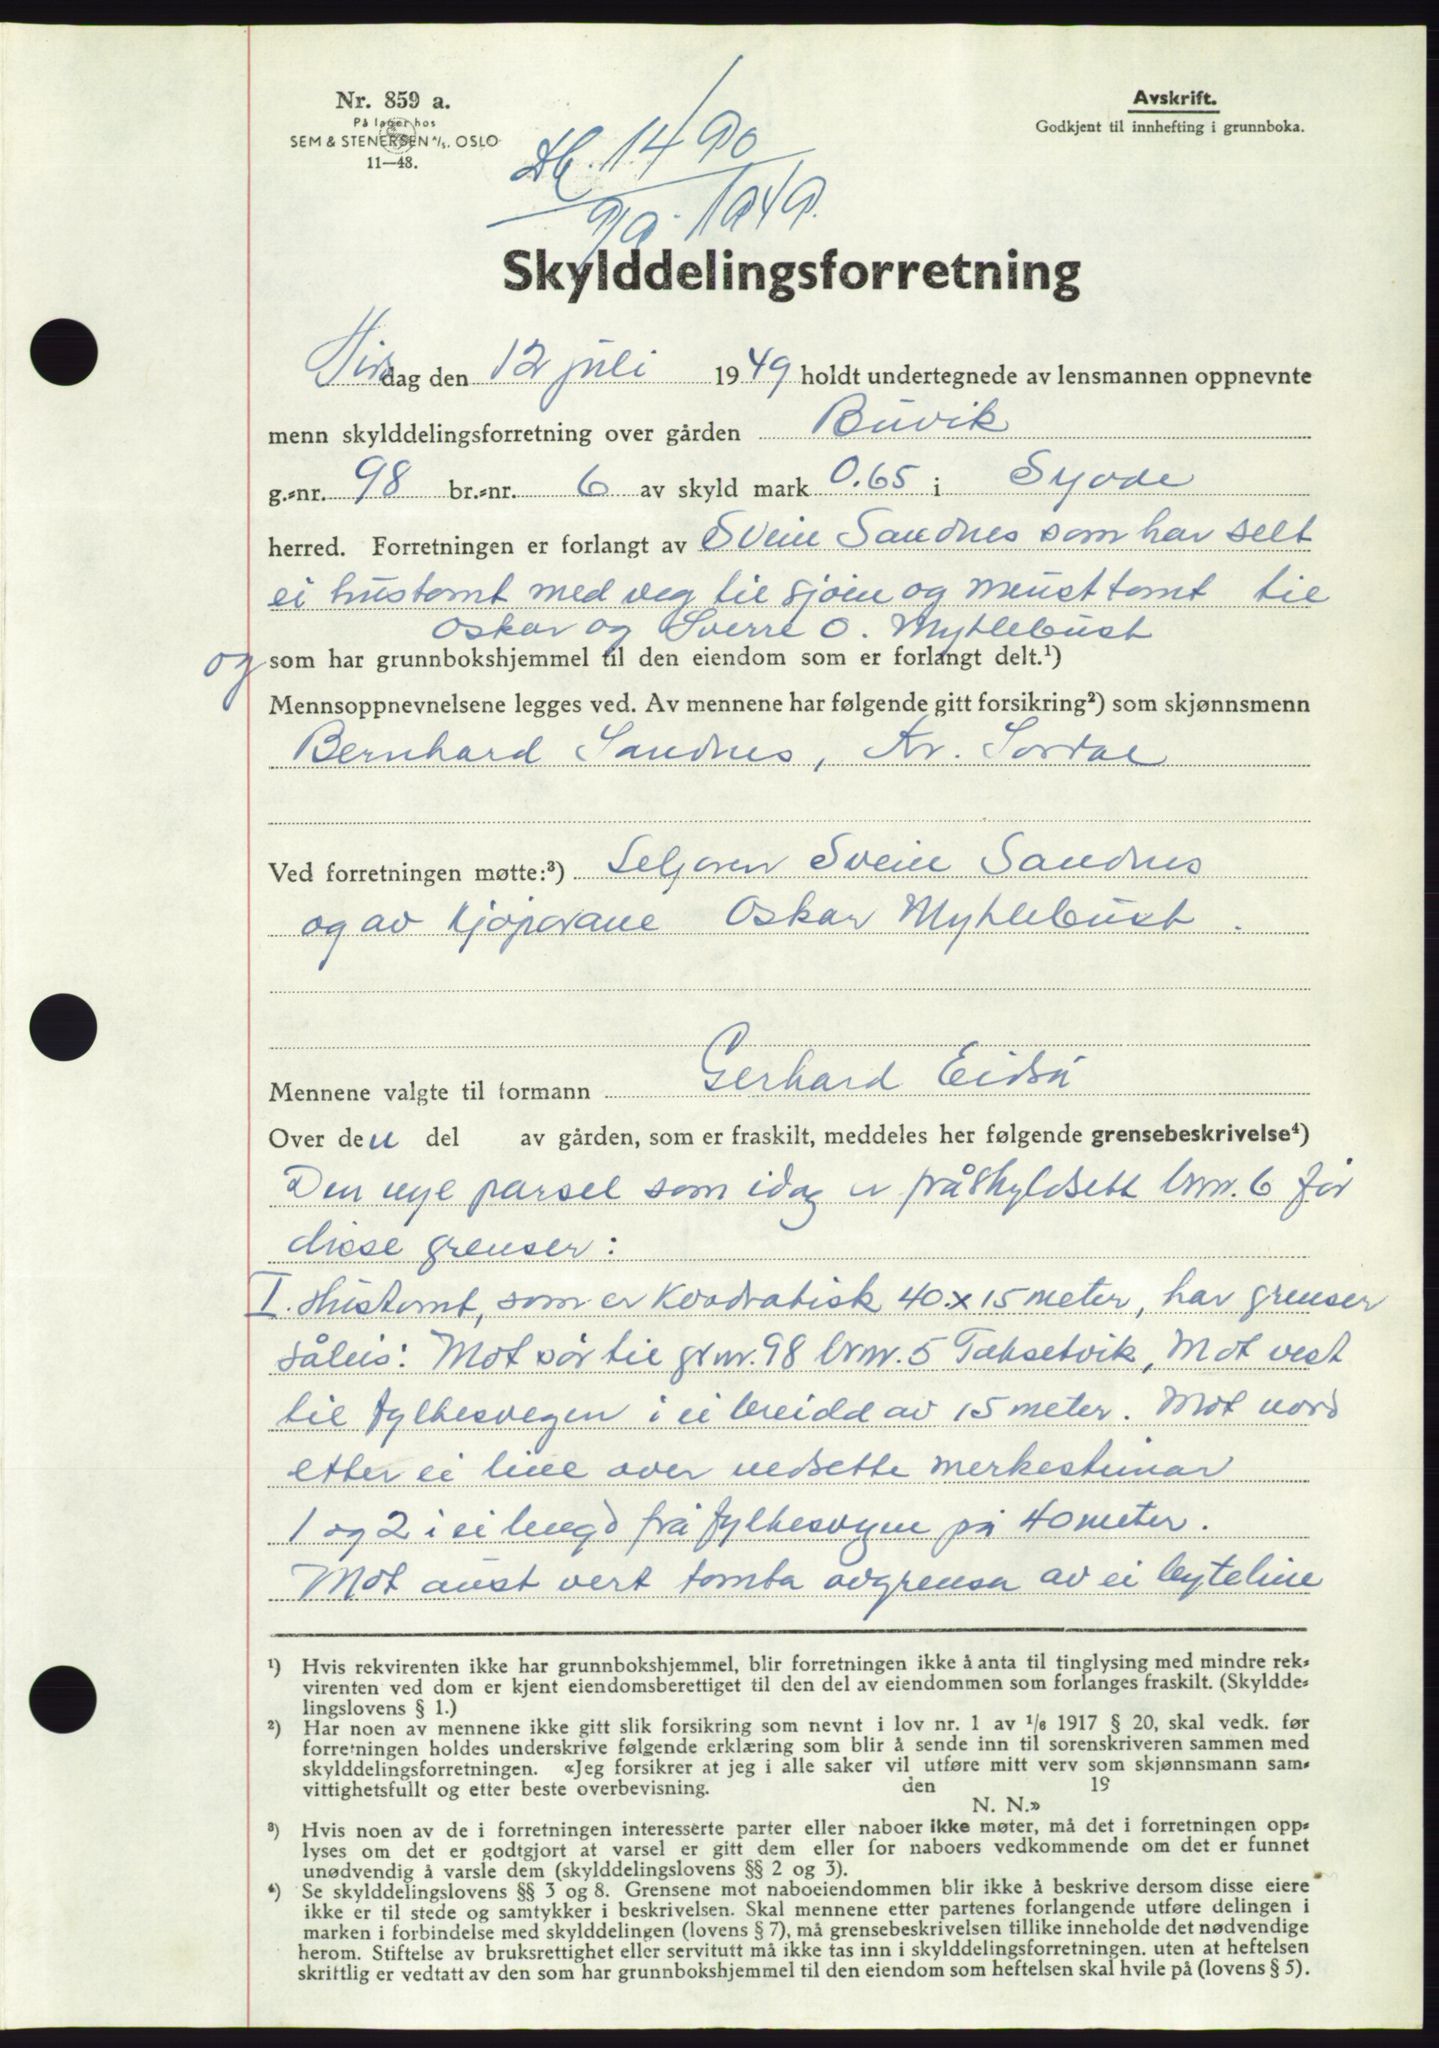 Nr. 859 a.
På lager hos
SEM & STENERSEN A/S. OSLO
11—48.
Avskrift.
Godkjent til innhefting i grunnboka.
Db. 1490
9/9. 1949.
Skylddelingsforretning
Tirsdag den 12 juli 1949 holdt undertegnede av lensmannen oppnevnte
menn skylddelingsforretning over gården Buvik
g.-nr. 98 br.-nr. 6 av skyld mark 0.65 i Syvde
herred. Forretningen er forlangt av Svein Sandnes som har selt
ei hustomt med veg til sjøen og nausttomt til
Oskar og Sverre O. Myklebust
og som har grunnbokshjemmel til den eiendom som er forlangt delt.¹)
Mennsoppnevnelsene legges ved. Av mennene har følgende gitt forsikring²) som skjønnsmenn
Bernhard Sandnes, Kr. Sordal
Ved forretningen møtte:³) Seljaren Svein Sandnes
og av kjøparane Oskar Myklebust.
Mennene valgte til formann Gerhard Eidså
Over den del av gården, som er fraskilt, meddeles her følgende grensebeskrivelse⁴)
Den nye parsel som idag er fråskyldsett brnr. 6 får
disse grenser:
I. Hustomt, som er kvadratisk 40 x 15 meter, har grenser
såleis: Mot sør til grnr. 98 brnr. 5 Taksetvik, Mot vest
til fylkesvegen i ei breidd av 15 meter. Mot nord
etter ei line over nedsette merkesteinar
1 og 2 i ei lengd frå fylkesvegen på 40 meter.
Mot aust vert tomta avgrensa av ei byteline
¹) Hvis rekvirenten ikke har grunnbokshjemmel, blir forretningen ikke å anta til tinglysing med mindre rek-
virenten ved dom er kjent eiendomsberettiget til den del av eiendommen som forlanges fraskilt. (Skyldde-
lingslovens § 1.)
²) Har noen av mennene ikke gitt slik forsikring som nevnt i lov nr. 1 av 1/6 1917 § 20, skal vedk. før
forretningen holdes underskrive følgende erklæring som blir å sende inn til sorenskriveren sammen med
skylddelingsforretningen. «Jeg forsikrer at jeg i alle saker vil utføre mitt verv som skjønnsmann sam-
vittighetsfullt og etter beste overbevisning. den 19
N. N.»
³) Hvis noen av de i forretningen interesserte parter eller naboer ikke møter, må det i forretningen opp-
lyses om det er godtgjort at varsel er gitt dem eller for naboers vedkommende om det er funnet
unødvendig å varsle dem (skylddelingslovens §§ 2 og 3).
⁴) Se skylddelingslovens §§ 3 og 8. Grensene mot naboeiendommen blir ikke å beskrive dersom disse eiere
ikke er til stede og samtykker i beskrivelsen. Skal mennene etter partenes forlangende utføre delingen i
marken i forbindelse med skylddelingen (lovens § 7), må grensebeskrivelsen tillike inneholde det nødvendige
herom. Stiftelse av bruksrettighet eller servitutt må ikke tas inn i skylddelingsforretningen. uten at heftelsen
skriftlig er vedtatt av den som har grunnbokshjemmel til den eiendom som heftelsen skal hvile på (lovens § 5).